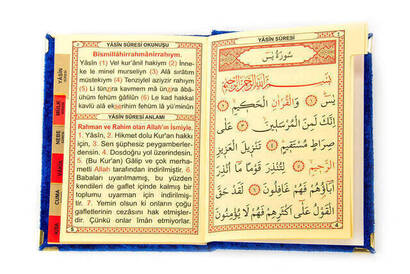 YÂSÎN SÛRESİ OKUNUŞU
Bismillâhirrahmânirrahîm.
Yâsîn (1) Vel kur'ânil hakîm (2) İnne-
ke le minel murselîyn (3) Alâ sırâtım
müstekıym (4) Tenziylel azizir rahiym
(5) Li tünzira kavmem mâ ünzira âbâ-
ühüm fehüm ğâfilûn (6) Le kad hakkal
kavlü alâ ekserihim fehüm lâ yü'minûn
YÂSÎN SÛRESİ ANLAMI
Rahman ve Rahim olan Allah'ın İsmiyle.
1. Yâsîn, 2. Hikmet dolu Kur'an hakkı
için, 3. Sen şüphesiz peygamberler-
densin. 4. Dosdoğru yol üzerindesin.
5. (Bu Kur'an) Gâlip ve çok merha-
metli Allah tarafından indirilmiştir. 6.
Babaları uyarılmamış, bu yüzden
kendileri de gaflet içinde kalmış bir
toplumu uyarman için indirilmiş-
tir. 7. Yemin olsun ki onların çoğu
gafletlerinin cezâsını hak etmişler-
dir. Çünkü onlar îman etmiyorlar.
5
YÂSÎN
MÜLK
NEBE
CUMA
YÂSÎN SÛRESİ
سُورَةُ يٰسٓ
بِسْمِ اللّٰهِ الرَّحْمٰنِ الرَّحِيمِ
يٰسٓ ﴿١﴾ وَالْقُرْاٰنِ الْحَكِيمِ ﴿٢﴾
اِنَّكَ لَمِنَ الْمُرْسَلِينَ ﴿٣﴾ عَلٰى
صِرَاطٍ مُسْتَقِيمٍ ﴿٤﴾ تَنْزِيلَ الْعَزِيزِ
الرَّحِيمِ ﴿٥﴾ لِتُنْذِرَ قَوْمًا مَٓا اُنْذِرَ
اٰبَٓاؤُهُمْ فَهُمْ غَافِلُونَ ﴿٦﴾ لَقَدْ حَقَّ
الْقَوْلُ عَلٰٓى اَكْثَرِهِمْ فَهُمْ لَا يُؤْمِنُونَ
4